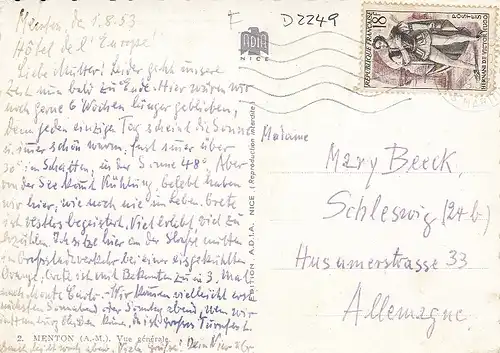 Menton, den 1.8.53
Hôtel de l'Europe!
Liebe Mutter! Leider geht unsere
Zeit nun bald zu Ende. Hier wären wir
noch gerne 6 Wochen länger geblieben,
Denn jeden einzige Tag scheint die Sonne
u. immer schön warm, fast immer über
30° im Schatten, in der Sonne 48°. Aber
von der See Kühlung, belebt haben
wir hier, wie noch nie im Leben. Grete
ist restlos begeistert. Viel erlebt, viel zu
erzählen. Ich sitze hier an der Straße mitten
im Großstadtverkehr bei einer eisgekühlten
Orange. Grete ist mit Bekannten zu 3. Mal
nach Monte Carlo. - Wir können vielleicht erst
nächsten Sonnabend oder Sonntag abend, wenn wir
in bleiben können, da ist großes Turnfest.
Viele Grüße! Dein
2. MENTON (A.-M.). Vue générale.
F
D2249
ADIA
NICE
EDITIONS A.D.I.A. NICE (Reproduction interdite)
18F
POSTES
REPUBLIQUE FRANÇAISE
HERNANI DE VICTOR HUGO
Madame
Mary Beeck,
Schleswig (24b)
Husumerstrasse 33
Allemagne.